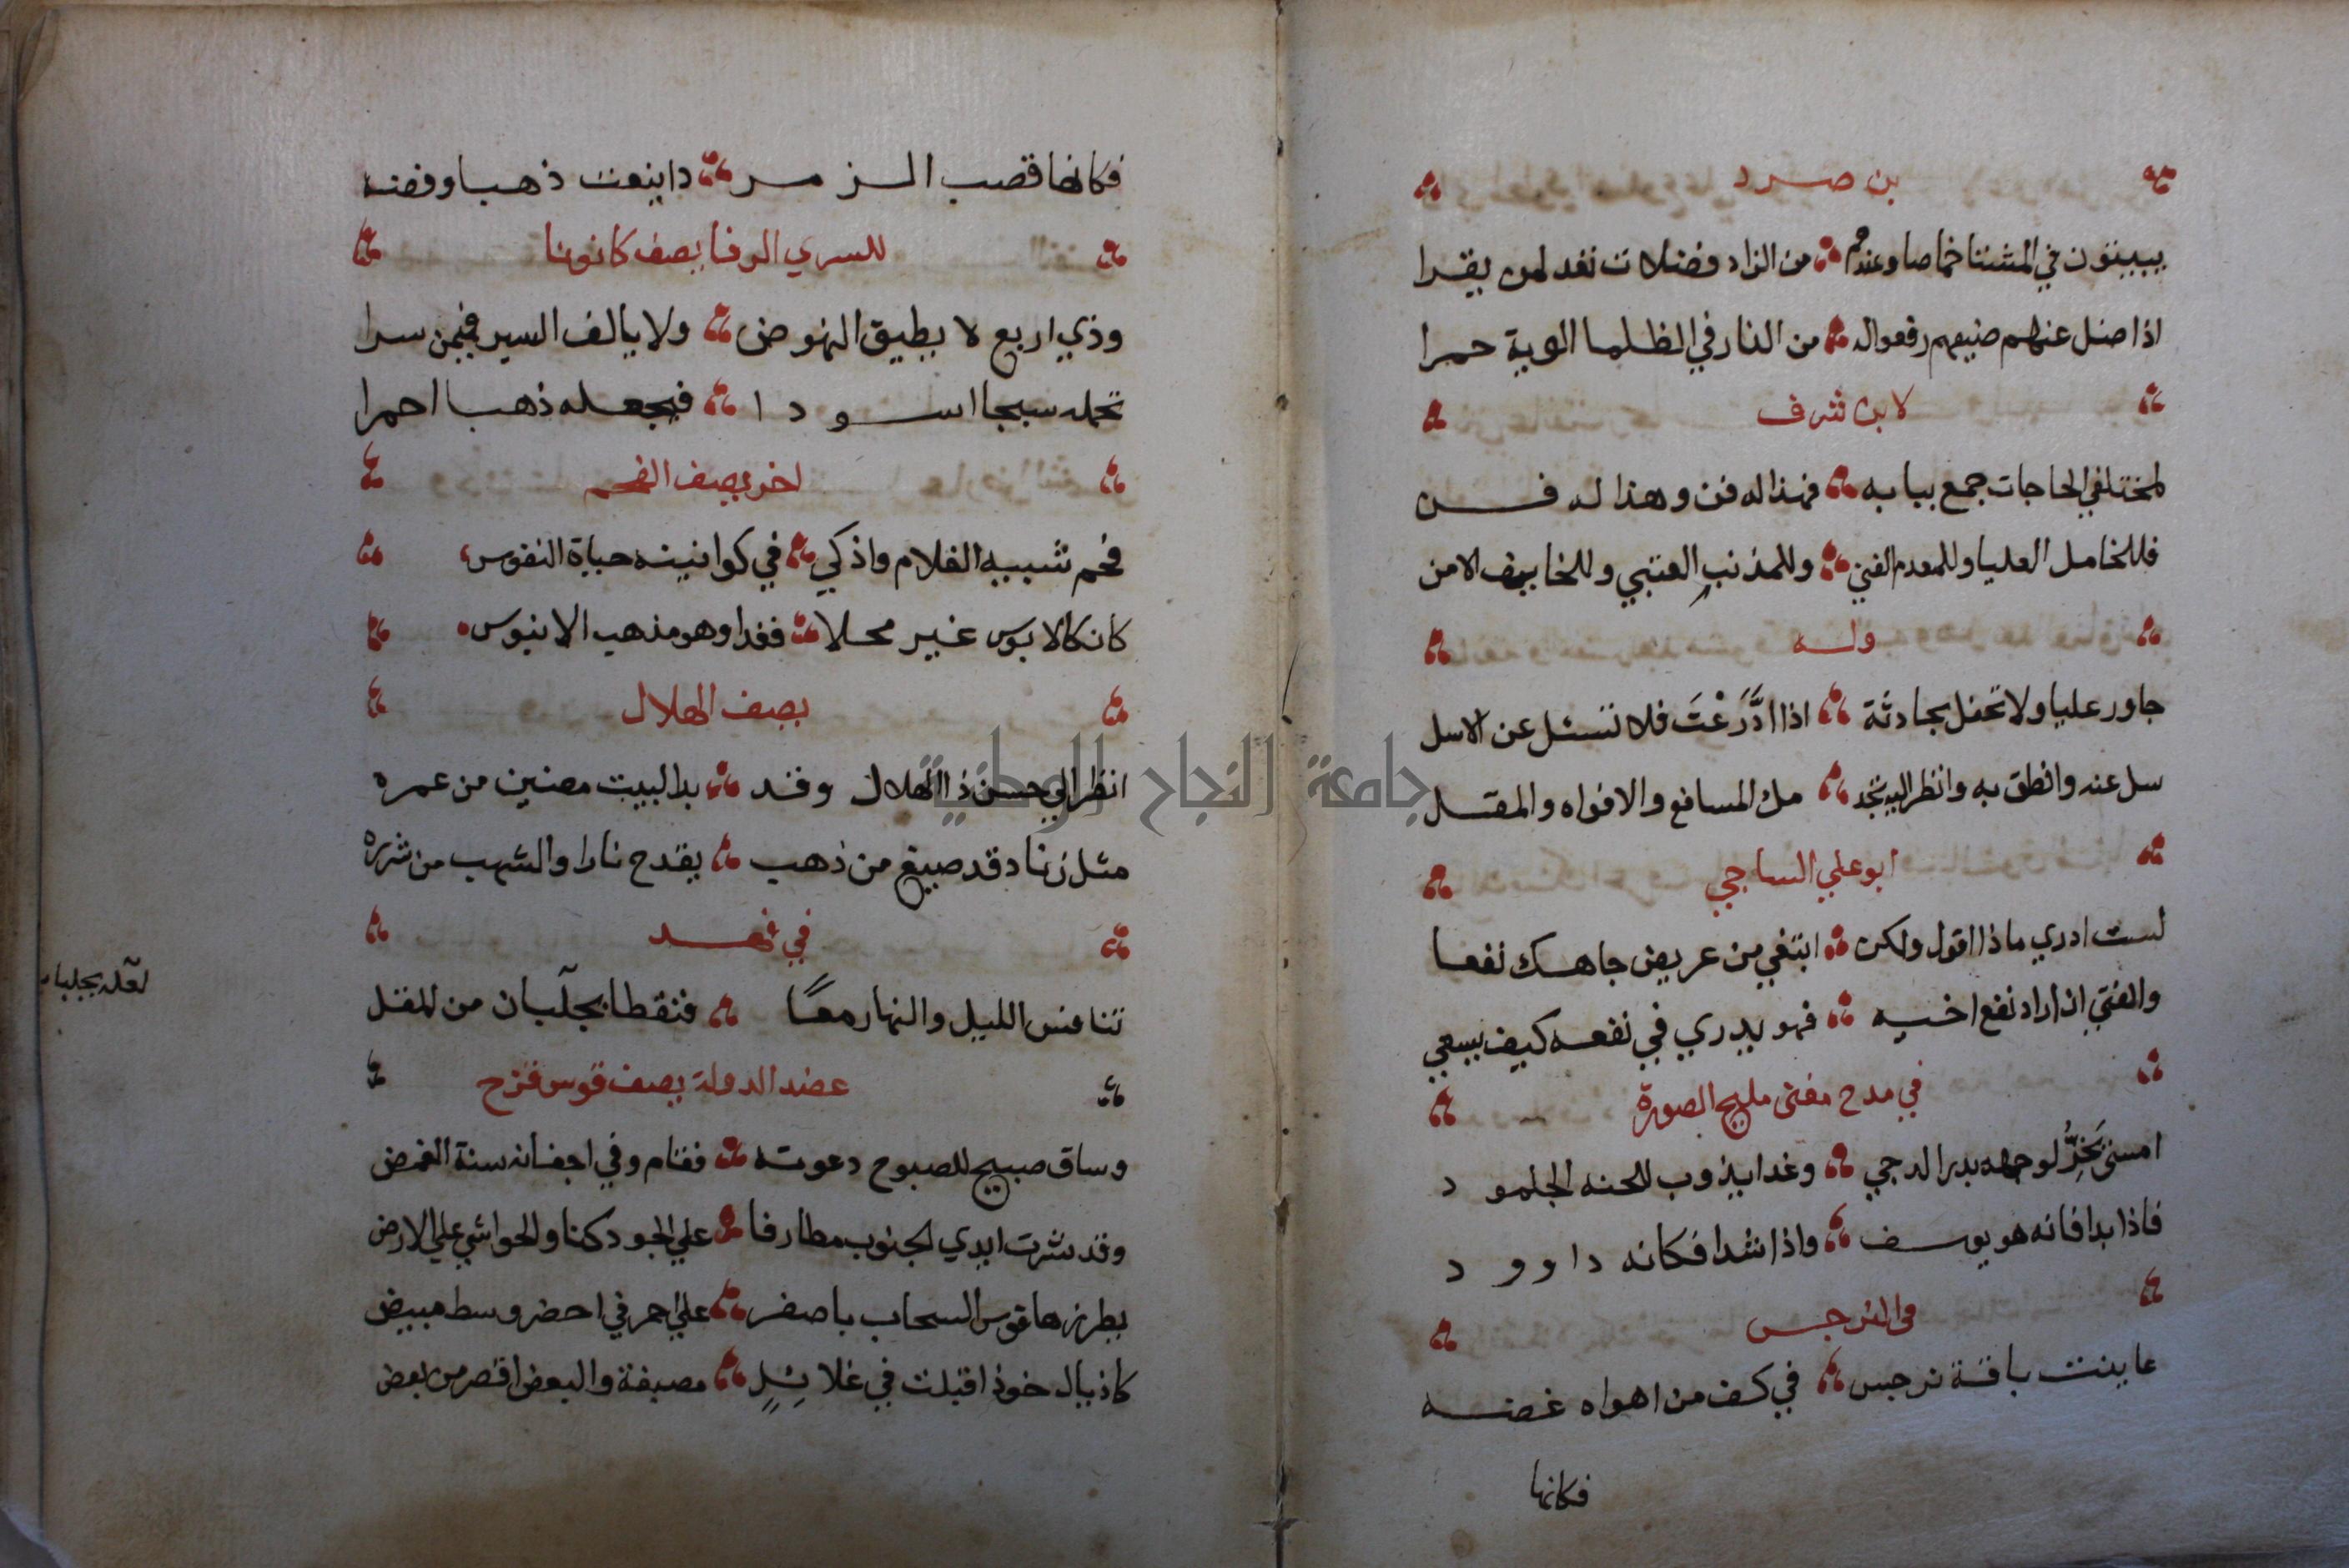 بن صرد
يبيتون في المشتا خماصا وعندهم من الزاد فضلات تعد لمن يقرا
اذا ضل عنهم ضيفهم رفعوا له من النار في الظلما الوية حمرا
لابن شرف
لمختلفي الحاجات جمع ببابه فهذا له فن وهذا له فن
فللخامل العليا وللمعدم الغني وللمذنب العتبي وللخايف الامن
وله
جاور عليا ولا تحفل بحادثة اذا ادَّرَعْتَ فلا تسئل عن الاسل
سل عنه وانطق به وانظر اليه تجد ملء المسامع والافواه والمقل
ابو علي الساجي
لست ادري ماذا اقول ولكن ابتغي من عريض جاهك نفعا
والفتي ان اراد نفع اخيه فهو يدري في نفعه كيف يسعي
في مدح مغنى مليح الصورة
امسى يَخِرُّ لوجهه بدر الدجي وغدا يذوب للحنه الجلمود
فاذا بدا فانه هو يوسف واذا شدا فكانه داوود
في النرجس
عاينت باقة نرجس في كف من اهواه غضه
فكانها
فكانها قصب الزمر دا ينعت ذهبا وفضه
للسري الرفا يصف كانونا
وذي اربع لا يطيق النهوض ولا يالف السير فيمن سرا
تحمله سبجا اسودا فيجعله ذهبا احمرا
اخر يصف الفحم
فحم شبيبه الغلام واذكي في كوانينه حياة النفوس
كان كالابوس غير محلا فغدا وهو مذهب الابنوس
يصف الهلال
انظر الي حسن ذا الهلال وقد بدا لبيت مضين من عمره
مثل زناد قد صيغ من ذهب يقدح نارا والشهب من شرره
في فهد
تنافس الليل والنهار معًا فنقطا بجلبان من المقل
لعله بجلباب
عضد الدولة يصف قوس قزح
وساق صبيح للصبوح دعوته فقام وفي اجفانه سنة الغمض
وقد نشرت ايدي الجنوب مطارفا علي الجو دكنا والحواشي علي الارض
يطرزها قوس السحاب باصفر علي احمر في احضر وسط مبيض
كاذيال خوذ اقبلت في غلائِلٍ مصبغة والبعض اقصر من بعض
جامعة النجاح الوطنية